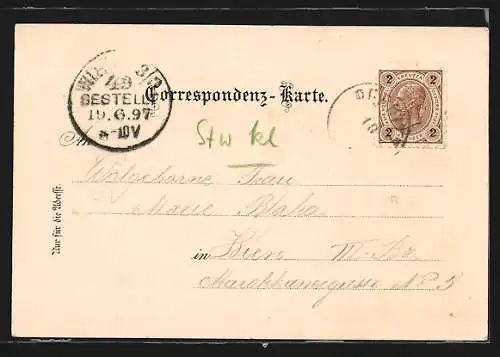 WIEN 3/2
49
BESTELLT
19.6.97
Correspondenz-Karte.
2 2
2 2
Stw kl
An
Wolgeborne Frau
Marie Blaha
in Wien III. Bz.
Marokkanergasse No 5
Nur für die Adresse.